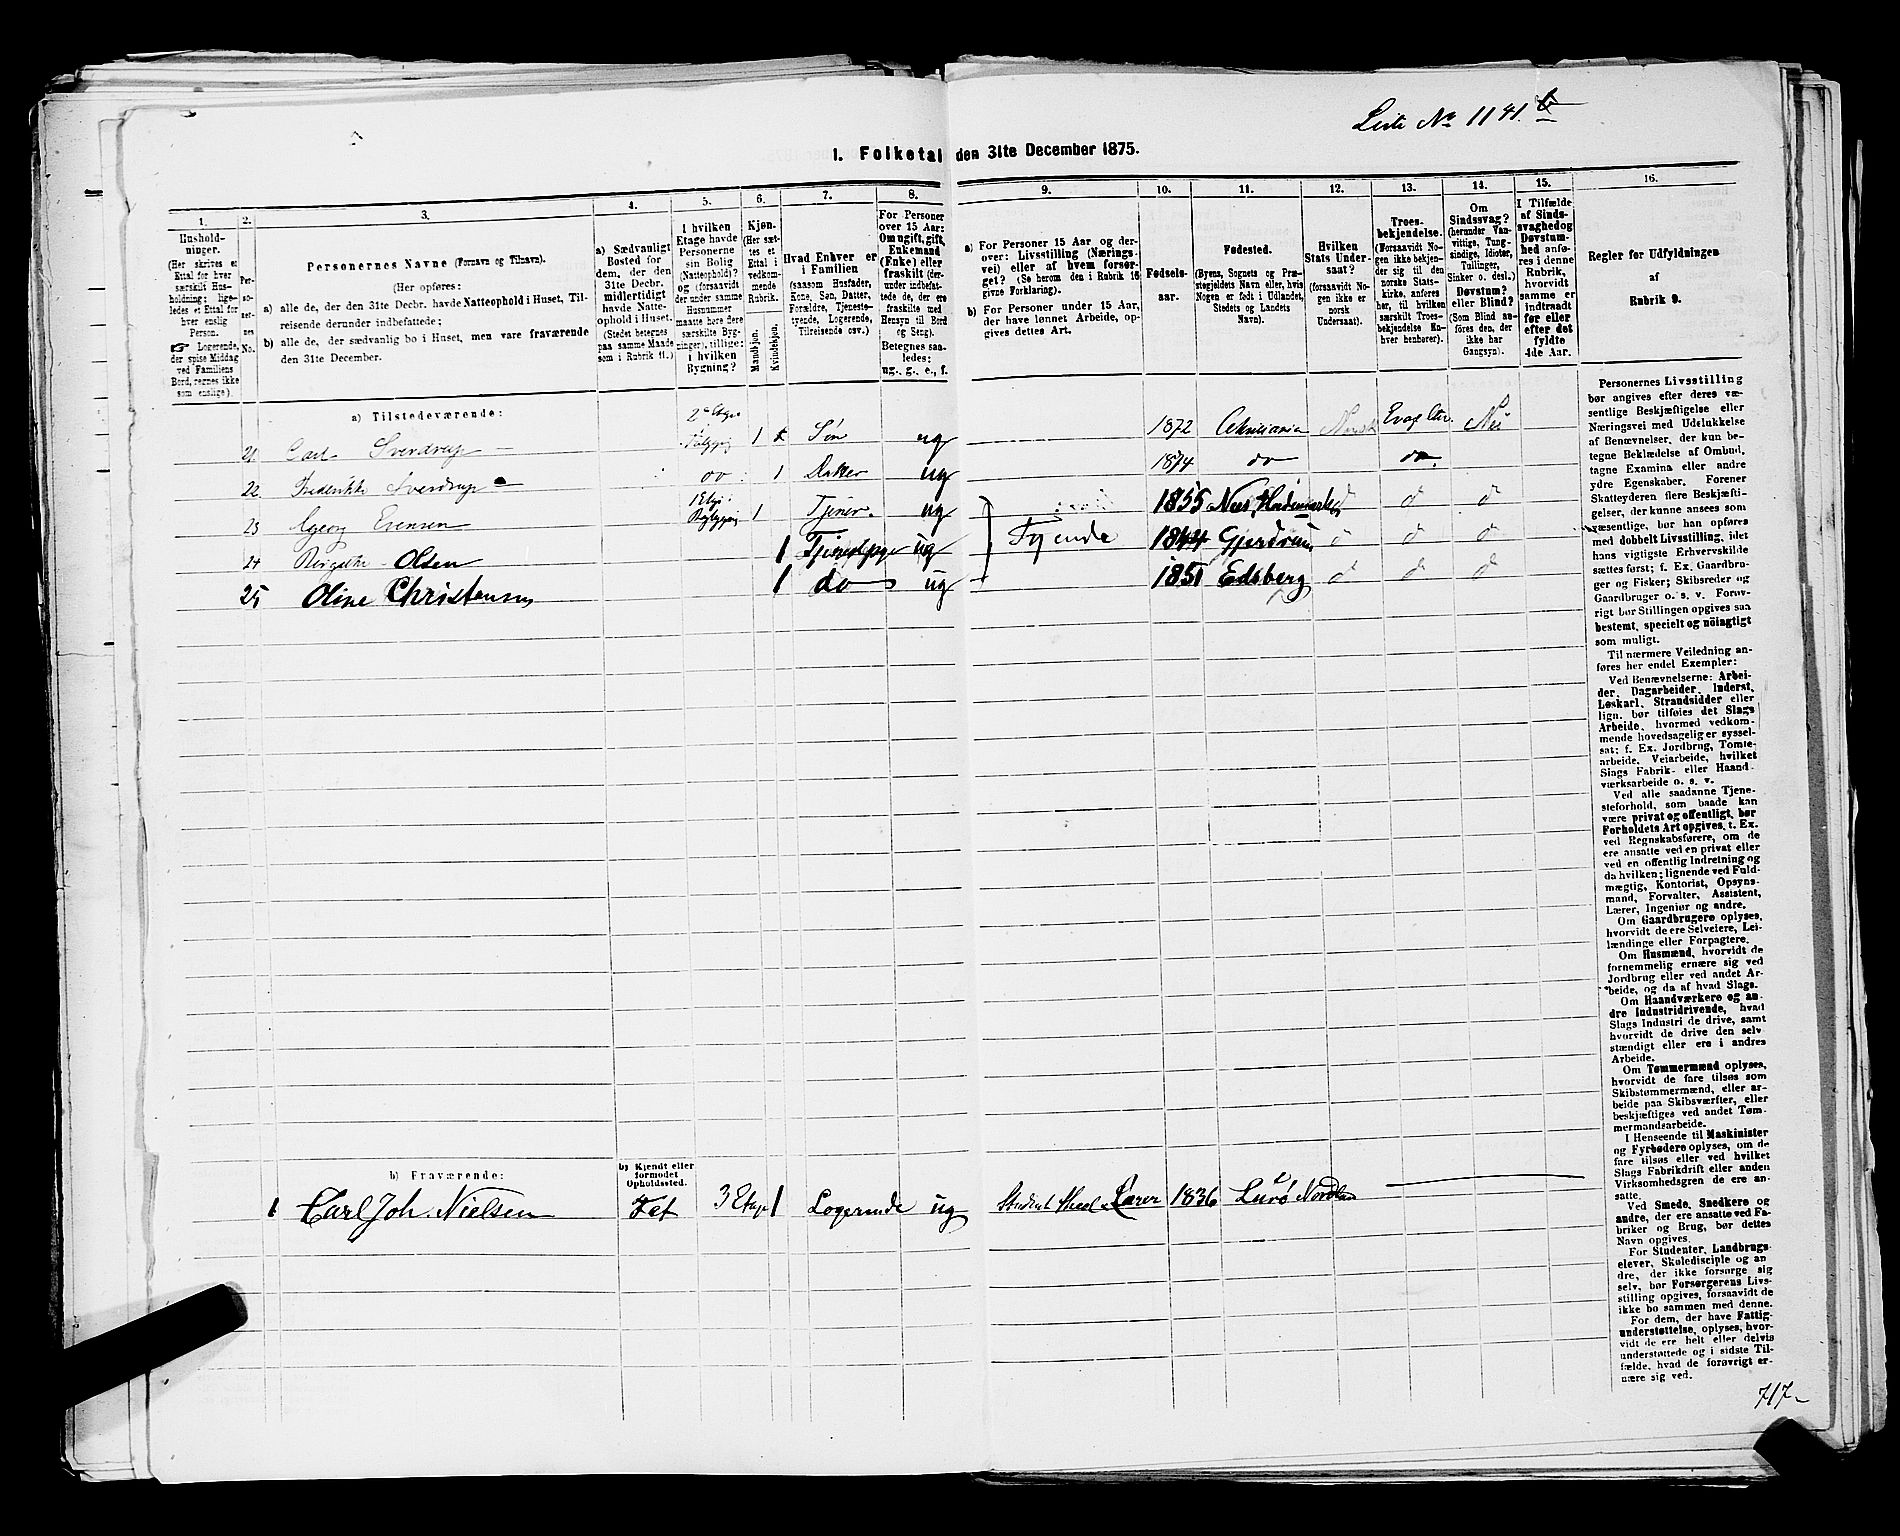 Liste No 1141 b
1. Folketal den 31te December 1875.
1.
2.
3.
4.
5.
6.
7.
8.
9.
10.
11.
12.
13.
14.
15.
16.
Hushold-
ninger.
(Her skrives et
Ettal for hver
særskilt Hus-
holdning; lige-
ledes et Ettal for
hver enslig
Person.
☞ Logerende,
der spise Middag
ved Familiens
Bord, regnes ikke
som enslige).
Per-
so-
ner-
nes
No.
Personernes Navne (Fornavn og Tilnavn).
(Her opføres:
a) alle de, der den 31te Decbr. havde Natteophold i Huset, Til-
reisende derunder indbefattede;
b) alle de, der sædvanlig bo i Huset, men vare fraværende
den 31te December.
a) Sædvanligt
Bosted for
dem, der den
31te Decbr.
midlertidigt
havde Natte-
ophold i Huset.
(Stedet betegnes
paa samme Maade
som i Rubrik 11.)
I hvilken
Etage havde
Personerne
sin Bolig
(Natteophold)?
og (forsaavidt
der under samme
Husnummer
maatte høre flere
særskilte Byg-
ninger), tillige:
i hvilken
Bygning?
Kjøn.
(Her sæt-
tes et
Ettal i
vedkom-
mende
Rubrik.
Mandkjøn.
Kvindekjøn.
Hvad Enhver er
i Familien
(saasom Husfader,
Kone, Søn, Datter,
Forældre, Tjeneste-
tyende, Logerende,
Tilreisende osv.)
For Personer
over 15 Aar:
Om ugift, gift,
Enkemand
(Enke) eller
fraskilt (der-
under indbefat-
tede de, der ere
fraskilte med
Hensyn til Bord
og Seng).
Betegnes saa-
ledes:
ug., g., e., f.
a) For Personer 15 Aar og der-
over: Livsstilling (Nærings-
vei) eller af hvem forsør-
get? (Se herom den i Rubrik 16
givne Forklaring).
b) For Personer under 15 Aar,
der have lønnet Arbeide, op-
gives dettes Art.
Fødsels-
aar.
Fødested.
(Byens, Sognets og Præ-
stegjeldets Navn eller, hvis
Nogen er født i Udlandet,
Stedets og Landets
Navn).
Hvilken
Stats Under-
saat?
(forsaavidt No-
gen ikke er
norsk
Undersaat).
Troes-
bekjendelse.
(Forsaavidt No-
gen ikke bekjen-
der sig til den
norske Stats-
kirke, anføres
her, til hvilken
særskilt Troes-
bekjendelse En-
hver henhører).
Om
Sindssvag?
(herunder Van-
vittige, Tung-
sindige, Idioter,
Tullinger,
Sinker o. desl.)
Døvstum?
eller Blind?
(Som Blind an-
føres den, der
ikke har
Gangsyn).
I Tilfælde
af Sinds-
svaghed og
Døvstum-
hed anfø-
res i denne
Rubrik,
hvorvidt
samme er
indtraadt
før eller
efter det
fyldte
4de Aar.
Regler for Udfyldningen
af
Rubrik 9.
a) Tilstedeværende:
21 Carl Sverdrup 1 Søn ug 1872 Christiania Norsk Evag Luth. Nei
22 Frederikke Sverdrup do 1 Datter ug 1874 do do
23 Georg Evensen 1 Etg. 1 Tjener. ug 1855 Næs, Hedemarken d d d
24 Olsen 1 Tjenestpge ug Tyende 1844 Gjerdrum d d d
25 Oline Christensen 1 do ug 1851 Edsberg d d d
b) Fraværende:
b) Kjendt eller
formodet
Opholdssted.
1 Carl Joh. Nielsen Fet 3 Etage 1 Logerende ug Student Lærer 1836 Lurö Nordland
Personernes Livsstilling
bør angives efter deres væ-
sentlige Beskjæftigelse eller
Næringsvei med Udelukkelse
af Benævnelser, der kun be-
tegne Beklædelse af Ombud,
tagne Examina eller andre
ydre Egenskaber. Forener
Skatteyderen flere Beskjæfti-
gelser, der kunne ansees som
væsentlige, bør han opføres
med dobbelt Livsstilling, idet
hans vigtigste Erhvervskilde
sættes først; f. Ex. Gaardbru-
ger og Fisker; Skibsreder og
Gaardbruger o. s. v. Forøv-
rigt bør Stillingen opgives saa
bestemt, specielt og nöiagtigt
som muligt.
Til nærmere Veiledning an-
føres her endel Exempler:
Ved Benævnelserne: Arbei-
der, Dagarbeider, Inderst,
Løskarl, Strandsidder eller
lign. bør tilføies det Slags
Arbeide, hvormed vedkom-
mende hovedsagelig er syssel-
sat; f. Ex. Jordbrug, Tomte-
arbeide, Veiarbeide, hvilket
Slags Fabrik- eller Haand-
værksarbeide o. s. v.
Ved alle saadanne Tjene-
steforhold, som baade kan
være privat og offentligt, bør
Forholdets Art opgives, t. Ex.
ved Regnskabsførere, om de
ere ansatte ved en privat eller
ved en offentlig Indretning og
da hvilken; lignende ved Fuld-
mægtig, Kontorist, Opsyns-
mand, Forvalter, Assistent,
Lærer, Ingeniør og andre.
Om Gaardbrugere oplyses,
hvorvidt de ere Selveiere, Lei-
lændinge eller Forpagtere.
Om Husmænd, hvorvidt de
fornemmelig ernære sig ved
Jordbrug eller ved andet Ar-
beide, og da af hvad Slags.
Om Haandværkere og an-
dre Industridrivende, hvad
Slags Industri de drive, samt
hvorvidt de drive den selv
stændigt eller ere i andres
Arbeide.
Om Tømmermænd oplyses,
hvorvidt de fare tilsøs som
Skibstømmermænd, eller ar-
beide paa Skibsværfter, eller
beskjæftiges ved andet Tøm-
mermandsarbeide.
I Henseende til Maskinister
og Fyrbødere oplyses, om de
fare tilsøs eller ved hvilket
Slags Fabrikdrift eller anden
Virksomhedsgren de ere an-
satte.
Ved Smede, Snedkere og
andre, der ere ansatte ved Fa-
briker og Brug, bør dettes
Navn opgives.
For Studenter, Landbrugs-
elever, Skoledisciple og an
dre, der ikke forsørge sig
selv, bør Forsørgerens Livs-
stilling opgives, forsaavidt de
ikke bo sammen med denne.
For dem, der have Fattig-
understøttelse, oplyses, hvor-
vidt de ere helt eller delvis
understøttede og i sidste Til-
fælde, hvad de forøvrigt er-
nære sig ved.
717